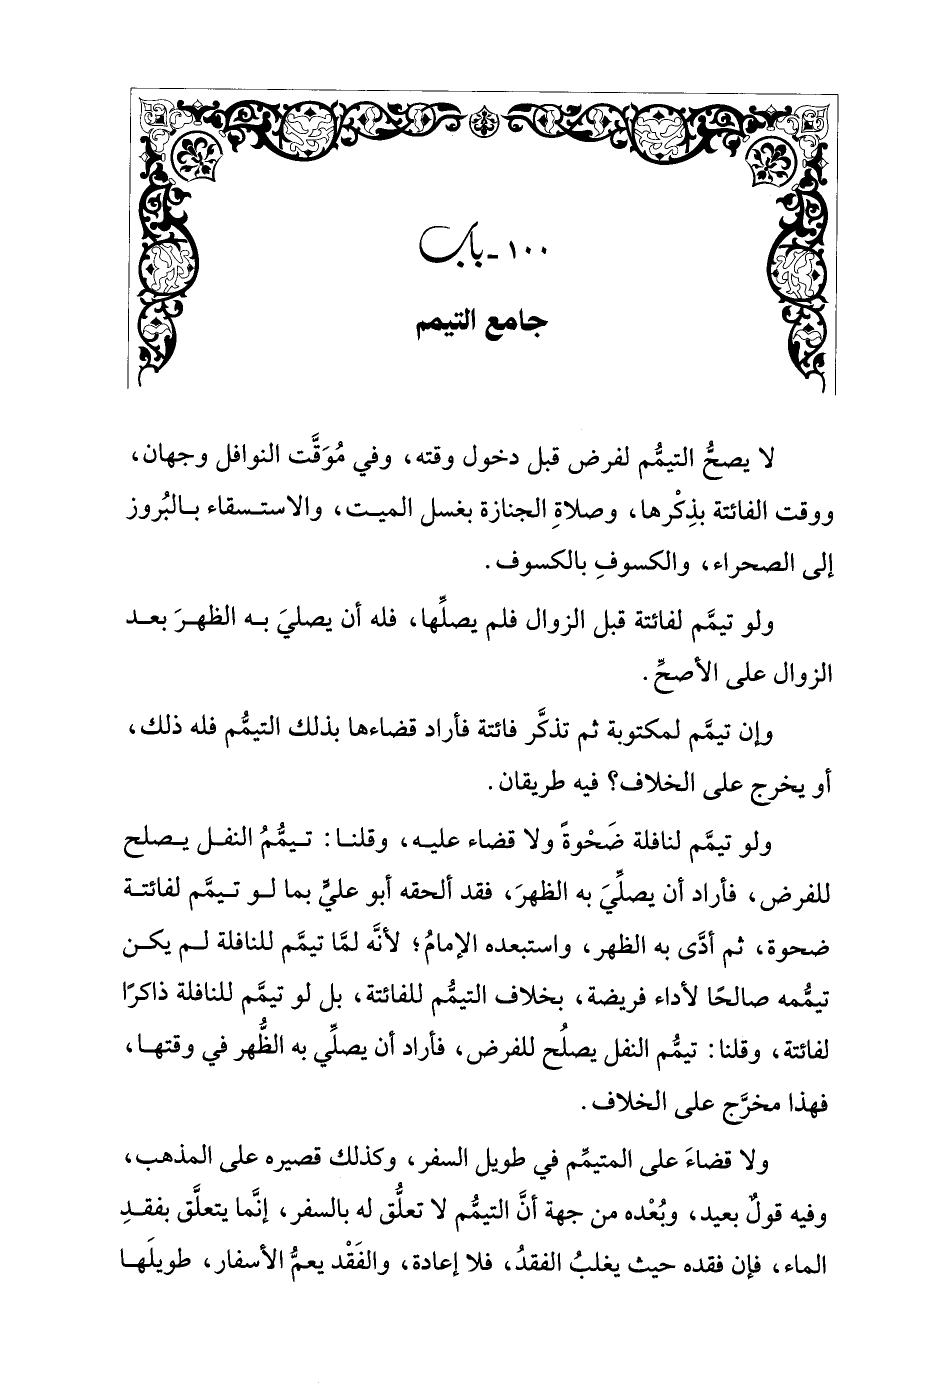 ١٠٠ - باب
جامع التيمم
لا يصحُّ التيمُّم لفرض قبل دخول وقته، وفي مُوَقَّت النوافل وجهان،
ووقت الفائتة بذِكْرها، وصلاةِ الجنازة بغسل الميت، والاستسقاء بالبُروز
إلى الصحراء، والكسوفِ بالكسوف.
ولو تيمَّم لفائتة قبل الزوال فلم يصلِّها، فله أن يصليَ به الظهرَ بعد
الزوال على الأصحِّ.
وإن تيمَّم لمكتوبة ثم تذكَّر فائتة فأراد قضاءها بذلك التيمُّم فله ذلك،
أو يخرج على الخلاف؟ فيه طريقان.
ولو تيمَّم لنافلة ضَحْوةً ولا قضاء عليه، وقلنا: تيمُّمُ النفل يصلح
للفرض، فأراد أن يصلِّيَ به الظهرَ، فقد ألحقه أبو عليٍّ بما لو تيمَّم لفائتة
ضحوة، ثم أدَّى به الظهر، واستبعده الإمامُ؛ لأنَّه لمَّا تيمَّم للنافلة لم يكن
تيمُّمه صالحًا لأداء فريضة، بخلاف التيمُّم للفائتة، بل لو تيمَّم للنافلة ذاكرًا
لفائتة، وقلنا: تيمُّم النفل يصلُح للفرض، فأراد أن يصلِّي به الظُّهر في وقتها،
فهذا مخرَّج على الخلاف.
ولا قضاءَ على المتيمِّم في طويل السفر، وكذلك قصيره على المذهب،
وفيه قولٌ بعيد، وبُعْده من جهة أنَّ التيمُّم لا تعلُّق له بالسفر، إنَّما يتعلَّق بفقدِ
الماء، فإن فقده حيث يغلبُ الفقدُ، فلا إعادة، والفَقْد يعمُّ الأسفار، طويلَها